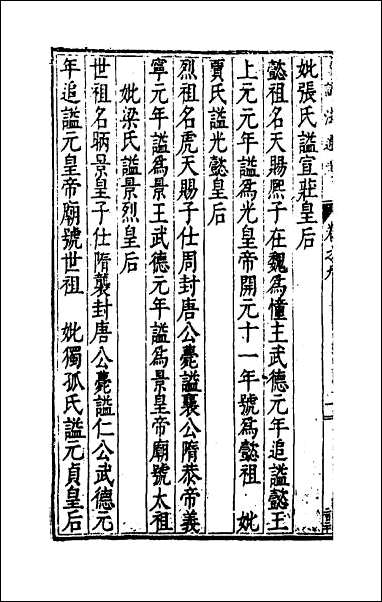 妣張氏謚宣莊皇后
懿祖名天賜熙子在魏爲懂主武德元年追謚懿王
上元元年謚爲光皇帝開元十一年號爲懿祖　妣
賈氏謚光懿皇后
烈祖名虎天賜子仕周封唐公薨謚襄公隋恭帝義
寧元年謚爲景王武德元年謚爲景皇帝廟號太祖
妣梁氏謚景烈皇后
世祖名昞景皇子仕隋襲封唐公薨謚仁公武德元
年追謚元皇帝廟號世祖　妣獨孤氏謚元貞皇后